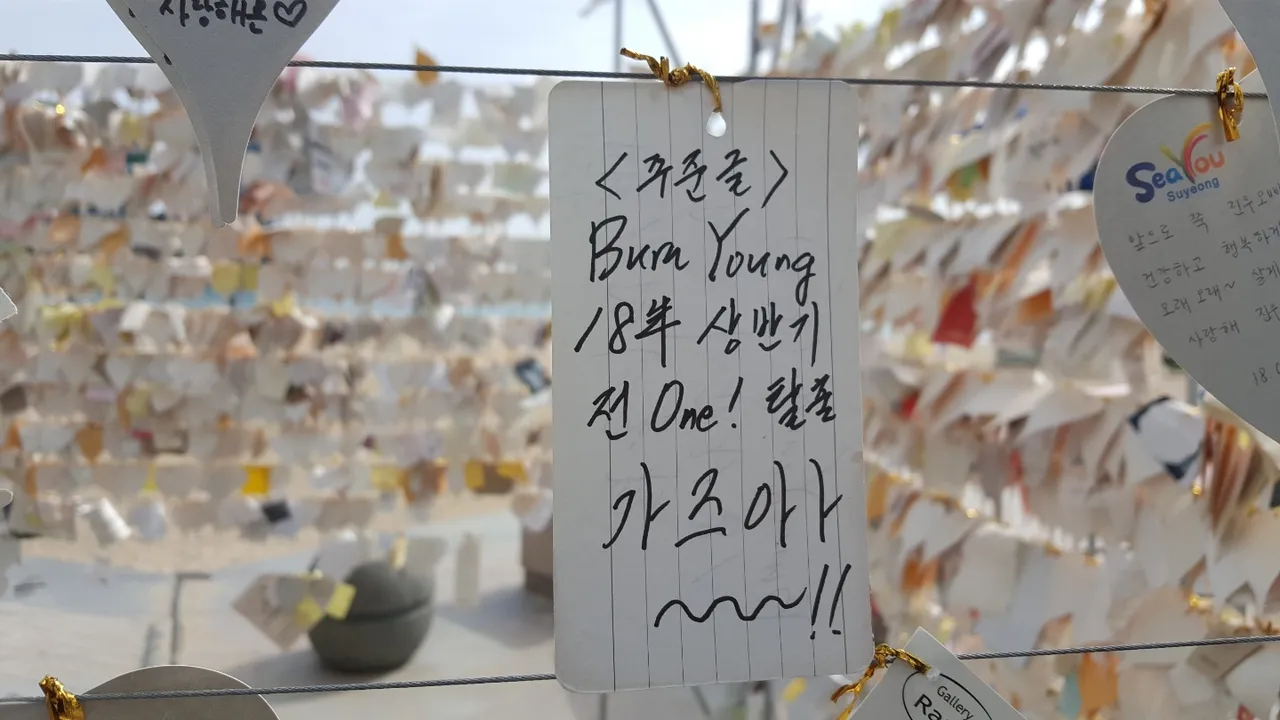 사랑해은♡
<주준글>
Bura Young
18年 상반기
전 One! 탈출
가즈아ㅏ
~~~!!
SeaYou
Suyeong
앞으로 쭉 진우오빠
건강하고 행복하게
오래오래~ 살게
사랑해 진우
18.0
Gallery
Ra